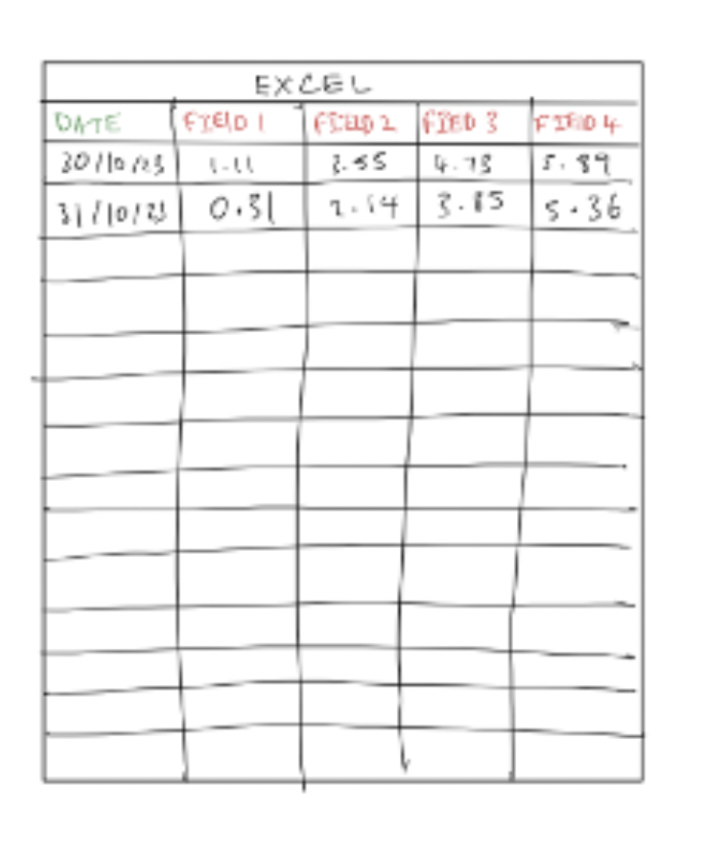 EXCEL
DATE FIELD 1 FIELD 2 FIED 3 FIELD 4
30/10/23 1.11 4.73 5.89
31/10/23 0.31 3.85 5.36